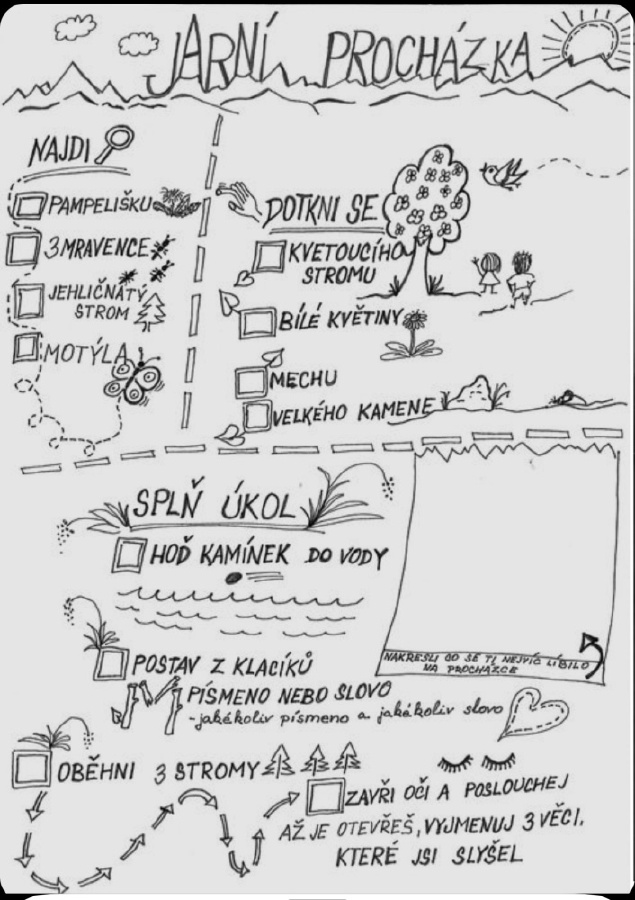 JARNÍ PROCHÁZKA
NAJDI
PAMPELIŠKU
3 MRAVENCE
JEHLIČNATÝ
STROM
MOTÝLA
DOTKNI SE
KVETOUCÍHO
STROMU
BÍLÉ KVĚTINY
MECHU
VELKÉHO KAMENE
SPLŇ ÚKOL
HOĎ KAMÍNEK DO VODY
POSTAV Z KLACÍKŮ
PÍSMENO NEBO SLOVO
- jakékoliv písmeno a jakékoliv slovo
NAKRESLI CO SE TI NEJVÍC LÍBILO
NA PROCHÁZCE
OBĚHNI 3 STROMY
ZAVŘI OČI A POSLOUCHEJ
AŽ JE OTEVŘEŠ, VYJMENUJ 3 VĚCI,
KTERÉ JSI SLYŠEL